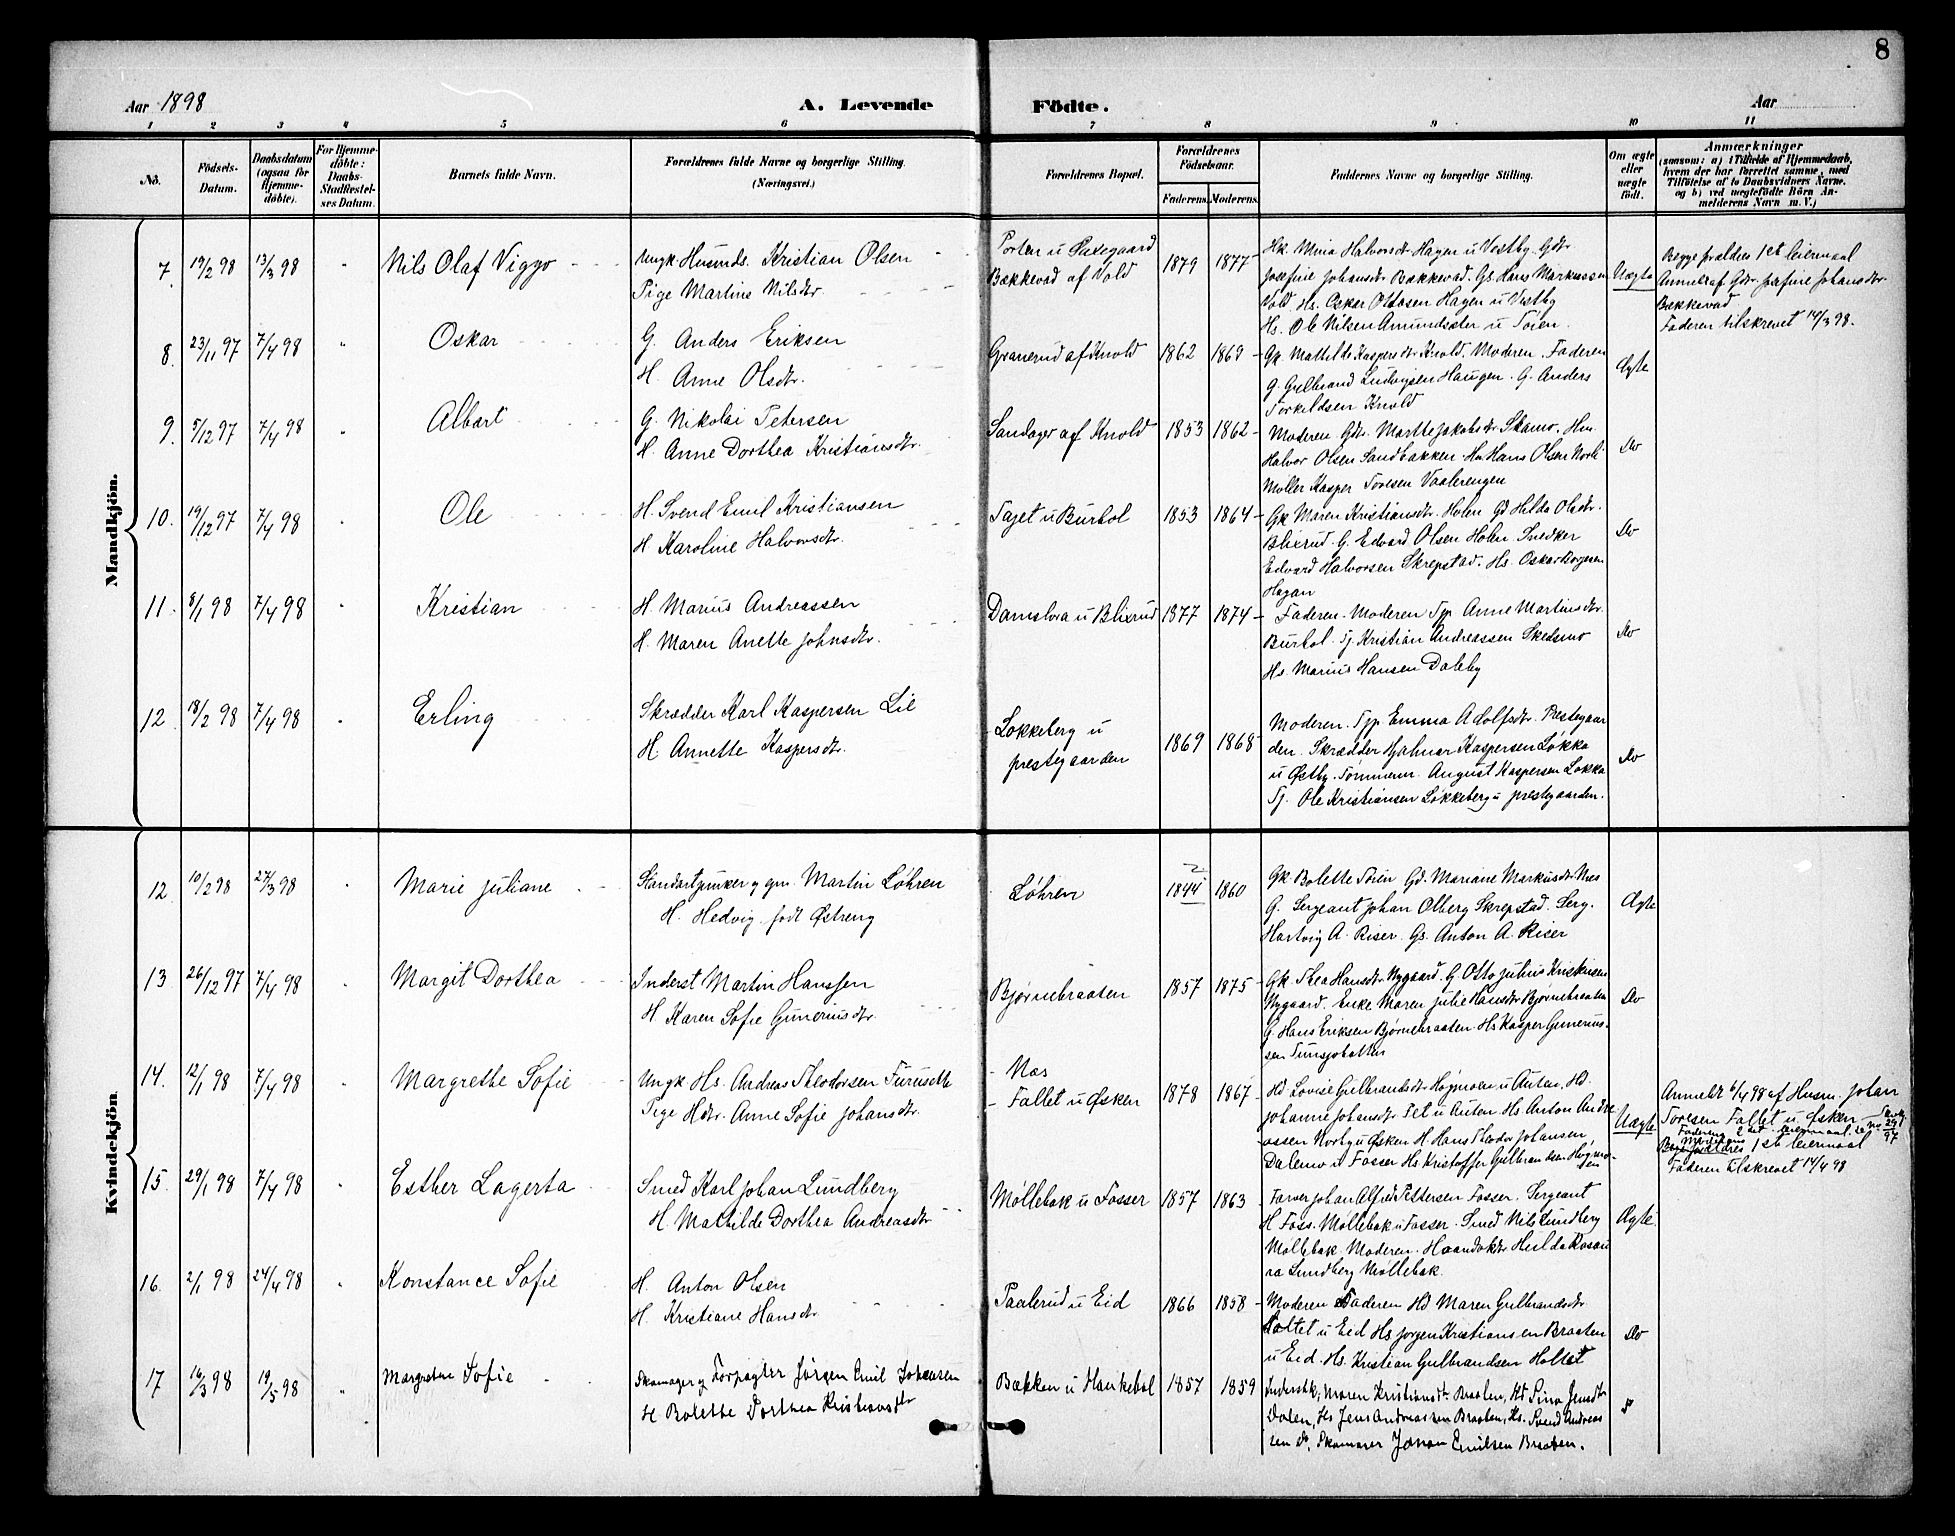 8
Aar 1898
A. Levende
Födte.
Aar
1 2 3 4 5 6 7 8 9 10 11
No.
Födsels-Datum.
Daabsdatum (ogsaa for Hjemme-döbte).
For Hjemme-döbte: Daabs-Stadfæstel-ses Datum.
Barnets fulde Navn.
Forældrenes fulde Navne og borgerlige Stilling. (Næringsvei.)
Forældrenes Bopæl.
Forældrenes Födselsaar.
Faderens. Moderens.
Faddernes Navne og borgerlige Stilling.
Om ægte eller uægte födt.
Anmærkninger
(saasom: a) i Tilfælde af Hjemmedaab, hvem der har forrettet samme, med Tilföielse af to Daabsvidners Navne, og b) ved uægtefödte Börn An-melderens Navn m. V.)
Mandkjön.
7. 19/2 98 13/3 98 " Nils Olaf Viggo
Ungk. Husmds. Kristian Olsen
Pige Martine Nilsdtr.
Porten u Øxegaard
Bækkevad af Vold
1879 1877
Hk. Mina Halvorsdr Hagen u Vestby. Gdtr
Josefine Johansdtr Bækkevad. Gs. Hans Markussen
Vold Hs. Oskar Olausen Hagen u Vestby
Hs. Ole Nilsen Amundsæter u Toien.
Uægte
Begge forældres 1st leiermaal
Anmeldt af Gdtr. Josefine Johansdtr
Bækkevad
Faderen tilskrevet 14/3 98.
8. 23/11 97 7/4 98 " Oskar
G. Anders Eriksen
H. Anne Olsdtr.
Granerud af Knold
1862 1869
Gk. Mathilde Kaspersdtr Knold. Moderen. Faderen
G. Gulbrand Ludvigsen Haugen. G. Anders
Torkildsen Knold
Ægte
9. 5/12 97 7/4 98 " Albert
G. Nikolai Petersen
H. Anne Dorthea Kristiansdtr.
Sandager af Knold
1853 1862
Moderen Gdtr. Marthe Jakobsdtr Skamo. Hm.
Halvor Olsen Sandbakken. Hm Hans Olsen Norli
Møller Kasper Toresen Vaalerengen
Do
10. 19/12 97 7/4 98 " Ole
H. Svend Emil Kristiansen
H Karoline Halvorsdtr.
Tajet u Burhol
1853 1864
Gk Maren Kristiansdtr. Holen Gd Hilda Olsdtr.
Blixrud. G. Edvard Olsen Holen Snedker
Edvard Halvorsen Skrepstad. Hs. Oskar Borgersen
Hagan
Do
11. 8/1 98 7/4 98 " Kristian
H. Marius Andreassen
H. Maren Anette Johnsdtr.
Damslora u Blixrud
1877 1874
Faderen. Moderen Tjp Anne Martinsdtr.
Burhol. Tj. Kristian Andreassen Skedsmo
Hs. Marius Hansen Dalby
Do
12 18/2 98 7/4 98 " Erling
Skrædder Karl Kaspersen Lie
H. Annette Kaspersdtr.
Løkkeberg u
prestegaarden
1869 1868
Moderen. Tjp. Emma Adolfsdtr. Prestegaar
den. Skrædder Hjalmar Kaspersen Løkka
u Østby. Tømmerm. August Kaspersen Løkka
Tj. Ole Kristiansen Løkkeberg u prestegaarden.
Do
Kvindekjön
12 10/2 98 27/3 98 " Marie Juliane
Standartjunker og gm. Martin Løhren
H. Hedvig født Østreng
Løhren
2
1844 1860
Gk Bolette Toien Gd. Mariane Markusdtr Nes
G. Sergeant Johan Olberg Skrepstad. Serg.
Hartvig A. Riser. Gs. Anton A. Riser
Ægte
13 26/12 97 7/4 98 " Margit Dorthea
Inderst Martin Hanssen
H Karen Sofie Gunerius dtr.
Bjørnebraaten
1857 1875
Gk. Thea Hansdtr. Nygaard. G. Otto Julius Kristiansen
Nygaard. Enke Maren Julie Hansdtr Bjørnebraaten
G. Hans Eriksen Bjørnebraaten. Hs Kasper Gunerius-
sen Tunsjøhalten
Do
14. 12/1 98 7/4 98 " Margrethe Sofie
Ungk Hs. Andreas Theodorsen Furusette
Pige Hdtr. Anne Sofie Johansdtr.
- Næs
- Fallet u Øsken
1878 1867
Hd Lovise Gulbrandsdtr Høgmoen u Auten, Hd.
Johanne Johansdtr Tet u Auton. Hs Anton Andre
assen Norby u Øsken H. Hans Theodor Johansen
Dalemo u Fosser Hs Kristoffer Gulbrandsen Høgmo-
en
Uægte
Anmeldt 6/4 98 af Husm. Johan
Toresen Fallet u Øsken
Faderens 2det leiermaal
Moderens 1st leiermaal
Faderen tilskrevet 14/4 98
15. 29/1 98 7/4 98 " Esther Lagerta
Smed Karl Johan Lundberg
H. Mathilde Dorthea Andreasdtr
Møllebæk u Fosser
1857 1863
Farver Johan Alfred Pettersen Fosser. Sergeant
H Foss. Møllebæk u Fosser. Smed Nils Lundberg
Møllebæk. Moderen. Haandvdtr Hilda Rosau
ra Lundberg Møllebæk.
Ægte
16. 2/1 98 24/4 98 " Konstance Sofie
H. Anton Olsen
H. Kristiane Hansdtr
Paalerud u Eid
1866 1858
Moderen Faderen Hd Maren Gulbrandsdtr
Holtet u Eid Hs Jørgen Kristiansen Braaten
u Eid. Hs. Kristian Gulbrandsen Holtet
Do
17 16/3 98 19/5 98 " Margrethe Sofie
Skomager og Forpagter Jørgen Emil Johansen
H Bolette Dorthea Kristiansdtr
Bækken u Haukebøl
1857 1859
Inderstk. Maren Kristiansdtr Braaten, Hd Sina Jensdtr
Dalen, Hs Jens Andreassen Braaten, Hs. Svend Andreas
sen do. Skomager Johan Emilsen Braaten.